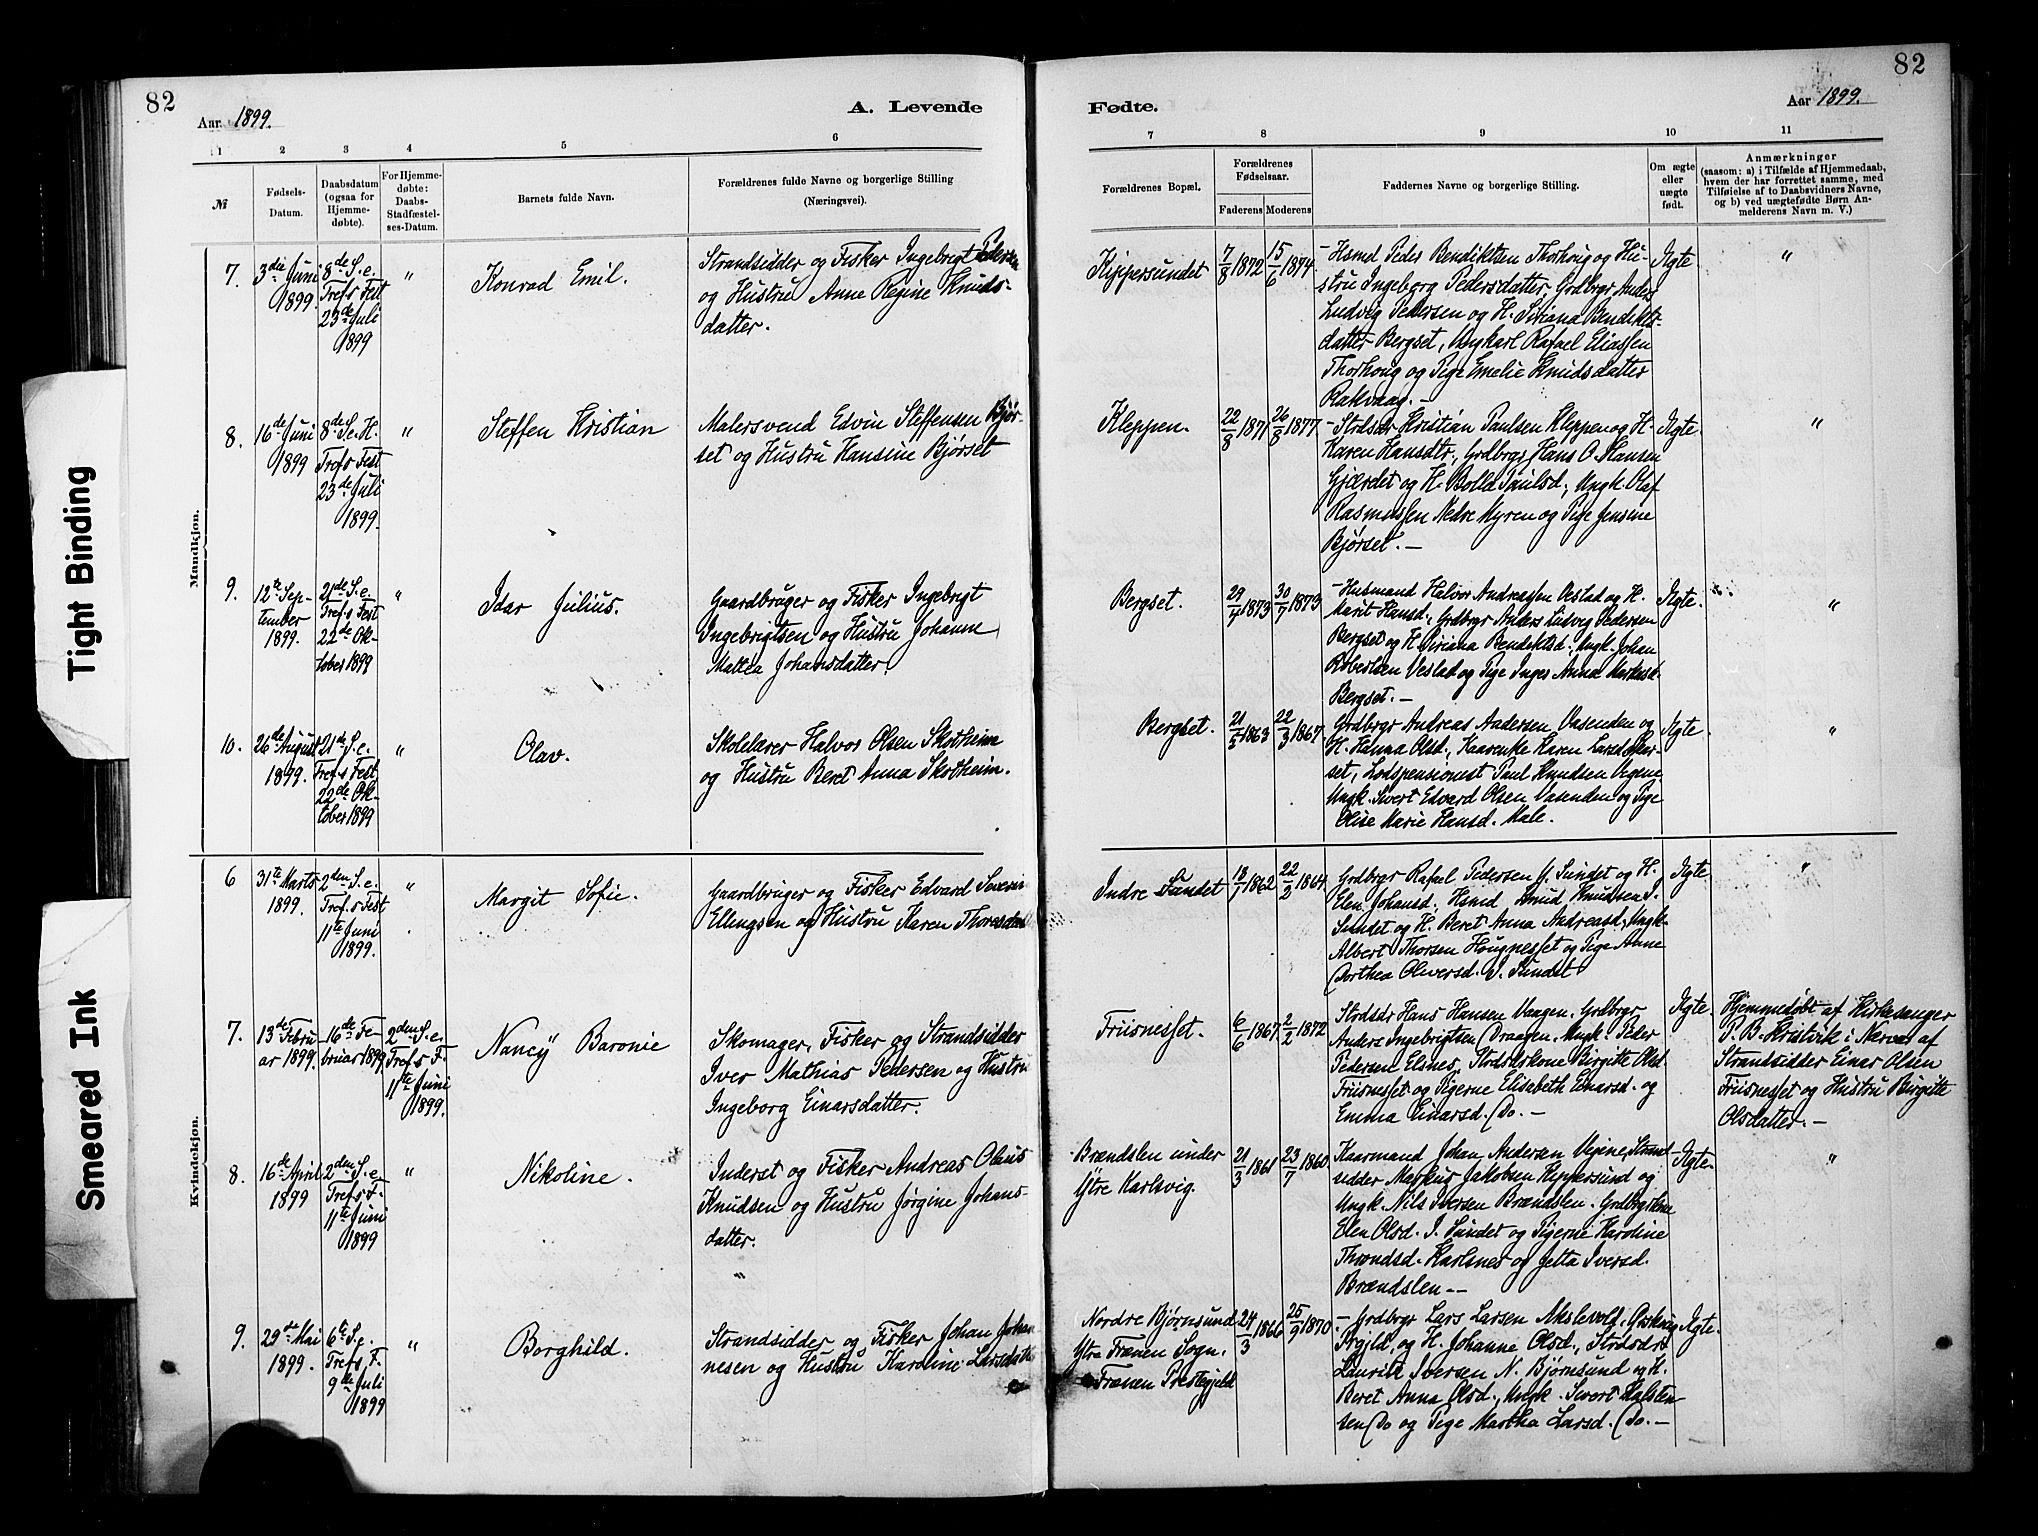 82
Aar 1899.
A. Levende
1 2 3 4 5 6
№
Fødsels-
Datum.
Daabsdatum
(ogsaa for
Hjemme-
døbte).
For Hjemme-
døbte:
Daabs-
Stadfæstel-
ses-Datum.
Barnets fulde Navn.
Forældrenes fulde Navne og borgerlige Stilling
(Næringsvei).
Mandkjøn.
7.
3die Juni
1899.
8de S. e.
Tref.s Fest
23de Juli
1899
"
Konrad Emil.
Strandsidder og Fisker Ingebrigt Pedersen
og Hustru Anne Regine Knuds-
datter.
8.
16de Juni
1899
8de S. e. H.
Tref.s Fest
23de Juli
1899.
"
Steffen Kristian
Malersvend Edvin Steffensen Bjør-
set og Hustru Hansine Bjørset
9.
12te Sep-
tember
1899.
21de S. e.
Tref.s Fest
22de Ok-
tober 1899
"
Idar Julius.
Gaardbruger og Fisker Ingebrigt
Ingebrigtsen og Hustru Johanne
Maltea Johansdatter.
10.
26de August
1899.
21de S. e.
Tref.s Fest
22de Ok-
tober 1899
"
Olav.
Skolelærer Halvor Olsen Skotheim
og Hustru Beret Anna Skotheim.
Kvindekjøn.
6
31te Marts
1899.
2den S. e.
Tref.s Fest
11te Juni
1899.
"
Margit Sofie.
Gaardbruger og Fisker Edvard Severin
Ellingsen og Hustru Karen Thoresdatter
7.
13de Febru
ar 1899.
16de Fe-
bruar 1899
2den S. e.
Tref.s F.
11te Juni
1899.
Nancÿ Baronie
Skomager, Fisker og Strandsidder
Iver Mathias Pedersen og Hustru
Ingeborg Einarsdatter.
8.
16de April
1899
2den S. e.
Tref.s F.
11te Juni
1899
"
Nikoline.
Inderst og Fisker Andreas Olaus
Knudsen og Hustru Jørgine Johans-
datter.
"
9.
29de Mai
1899.
6te S. e.
Tref.s F.
9de Juli
1899
"
Borghild.
Strandsidder og Fisker Johan Johan
nesen og Hustru Karoline Larsdatter
82
Fødte.
Aar 1899.
7 8 9 10 11
Forældrenes Bopæl.
Forældrenes
Fødselsaar.
Faderens Moderens
Faddernes Navne og borgerlige Stilling.
Om ægte
eller
uægte
født.
Anmærkninger
(saasom: a) i Tilfælde af Hjemmedaab,
hvem der har forrettet samme, med
Tilføielse af to Daabsvidners Navne,
og b) ved uægtefødte Børn An-
melderens Navn m. V.)
Kippersundet
7/8 1872
15/6 1874
- Hsmd Peder Bendiktsen Thorhoug og Hu-
stru Ingeborg Pedersdatter, Grdbrgr Anders
Ludvig Pedersen og H. Siriana Bendikts-
datter Bergset, Ungkarl Rafael Eliassen
Thorhoug og Pige Emelie Knudsdatter
Rakvaag. -
Ægte
"
Kleppen.
22/8 1871
26/8 1877
- Stdsdr Kristian Paulsen Kleppen og H.
Karen Hansdtr., Grdbrgr Hans O. Hansen
Gjærdet og H. Paulsd., Ungk. Olaf
Rasmussen Nedre Myren og Pige Jensine
Bjørset. -
Ægte.
"
Bergset.
29/4 1873
30/7 1873
- Husmand Halvor Andreassen Vestad og H.
Marit Hansd., Grdbrgr Anders Ludvig Pedersen
Bergset og H. Siriana Bendiktsd., Ungk. Johan
Robertsen Vestad og Pige Inger Anna Markusd.
Bergset. -
Ægte.
"
Bergset.
21/5 1863
22/3 1867
Grdbrgr Andreas Andersen Vasenden og
H. Hanna Olsd., Kaarenke Karen Larsd.
set, Lodspensionist Paul Knudsen Vegene
Ungk. Sivert Edvard Olsen Vasenden og Pige
Olise Marie Hansd. Male.
Ægte.
"
Indre Sundet
18/7 1862
22/2 1864
Grdbrgr Rafael Pedersen Y. Sundet og H.
Elen Johansd., Hsmd Knud Knudsen I.
Sundet og H. Beret Anna Andreasd., Ungk.
Albert Thorsen Hougnesset og Pige Anne
Dorthea Oliversd. I. Sundet
Ægte.
"
Friisnesset.
6/6 1867.
2/2 1872
Stdsdr Hans Hansen Vaagen, Grdbrgr.
Anders Ingebrigtsen Draagen, Ungk. Peder
Pedersen Elsnes, Stdsdrskone Birgitte Olsd.
Friisnesset og Pigerne Elisabeth Einarsd. og
Emma Einarsd. Do. -
Ægte.
Hjemmedøbt af Kirkesanger
P. B. Kristvik i Nærvær af
Strandsidder Einar Olsen
Friisnesset og Hustru Birgitte
Olsdatter. -
Brændslen under
Ytre Karlsvig.
21/3 1861
23/7 1860
Kaarmand Johan Andersen Vegene, Strand-
sidder Markus Jakobsen Kippersund og
Ungk. Nils Iversen Brændslen. Grdbrgrkone
Elen Olsd. I. Sundet og Pigerne Karoline
Throndsd. Karlsnes og Jetta Iversd.
Brændslen --
Ægte.
"
Nordre Bjørnsund
Ytre Frænen Sogn.
Frænen Prestegjeld
24/3 1866
25/9 1870
- Grdbrgr Lars Larsen Akslevold,
og H. Johanne Olsd., Stdsdr
Laurits Iversen N. Bjørnsund og H.
Beret Anna Olsd., Ungk. Sivert Halsten
sen Do og Pige Martha Larsd. Do. -
Ægte.
Tight Binding
Smeared Ink